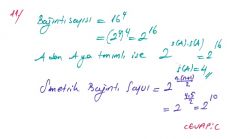 11/ Bağıntı sayısı = 16⁴
= (2⁴)⁴ = 2¹⁶
A dan A ya tanımlı ise 2^{s(A).s(A)} = 2¹⁶
s(A) = 4
Simetrik Bağıntı Sayısı = 2^{n(n+1)/2}
= 2^{4.5/2} = 2¹⁰
CEVAP: C